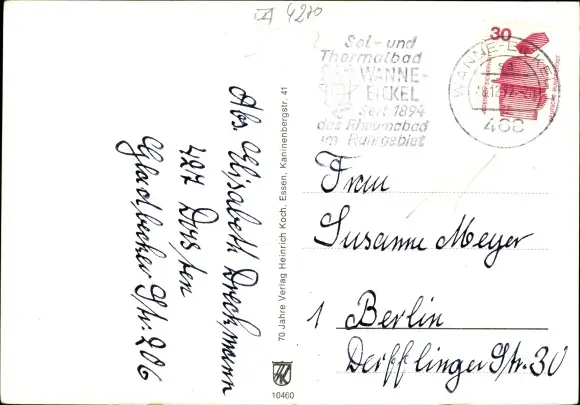 4270
Sol- und
Thermalbad
WANNE-
EICKEL
seit 1894
das Rheumabad
im Ruhrgebiet
WANNE-EICKEL
468
30
DEUTSCHE BUNDESPOST
Abs. Elisabeth Dreckmann
427 Dorsten
Gladbecker Str. 206
70 Jahre Verlag Heinrich Koch, Essen, Kaninenbergstr. 41
10460
Frau
Susanne Meyer
1 Berlin
Derfflinger Str. 30